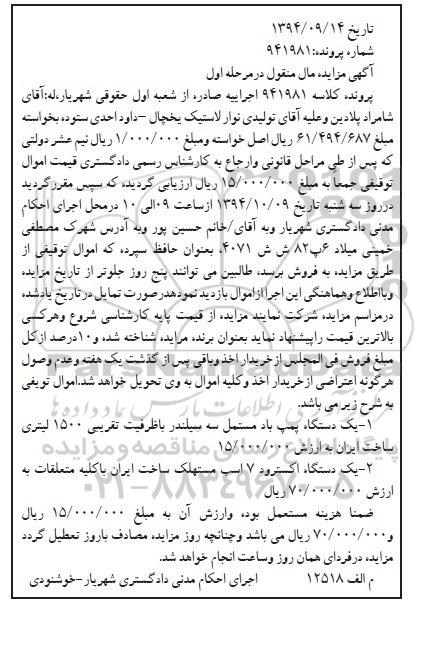 تاریخ ۱۳۹۴/۰۹/۱۴
شماره پرونده:۹۴۱۹۸۱
آگهی مزایده مال منقول درمرحله اول
پرونده کلاسه ۹۴۱۹۸۱ اجراییه صادره از شعبه اول حقوقی شهریار،له:آقای
شامراد پلادین وعلیه آقای تولیدی نوار لاستیک یخچال –داود احدی ستوده بخواسته
مبلغ ۶۱/۴۹۴/۶۸۷ ریال اصل خواسته ومبلغ ۱/۰۰۰/۰۰۰ ریال نیم عشر دولتی
که پس از طی مراحل قانونی وارجاع به کارشناس رسمی دادگستری قیمت اموال
توقیفی جمعا به مبلغ ۱۵/۰۰۰/۰۰۰ ریال ارزیابی گردیده که سپس مقرر گردید
درروز سه شنبه تاریخ ۱۳۹۴/۱۰/۰۹ ازساعت ۰۹الی ۱۰ درمحل اجرای احکام
مدنی دادگستری شهریار وبه آقای/خانم حسین پور وبه آدرس شهرک مصطفی
خمینی میلاد ۶پ۸۲ ش ش ۴۰۷۱. بعنوان حافظ سپرده که اموال توقیفی از
طریق مزایده به فروش برسد، طالبین می توانند پنج روز جلوتر از تاریخ مزایده
وبااطلاع وهماهنگی این اجراازاموال بازدید نمودهدرصورت تمایل درتاریخ یادشده
درمزاسم مزایده شرکت نمایند مزایده از قیمت پایه کارشناسی شروع وهرکسی
بالاترین قیمت راپیشنهاد نماید بعنوان برنده مزایده شناخته شده و۱۰درصد ازکل
مبلغ فروش فی المجلس ازخریدار اخذ وباقی پس از گذشت یک هفته وعدم وصول
هرگونه اعتراضی ازخریدار اخذ وکلیه اموال به وی تحویل خواهد شد.اموال تویفی
به شرح زیر می باشد.
۱-یک دستگاه پمپ باد مستمل سه سیلندر باظرفیت تقریبی ۱۵۰۰ لیتری
ساخت ایران به ارزش ۱۵/۰۰۰/۰۰۰
۲-یک دستگاه اکسترود ۷ اسب مستهلک ساخت ایران باکلیه متعلقات به
ارزش ۷۰/۰۰۰/۰۰۰ ریال
ضمنا هزینه مستعمل بوده وارزش آن به مبلغ ۱۵/۰۰۰/۰۰۰ ریال
و۷۰/۰۰۰/۰۰۰ ریال می باشد وچنانچه روز مزایده مصادف باروز تعطیل گردد
مزایده درفردای همان روز وساعت انجام خواهد شد.
م الف ۱۲۵۱۸ اجرای احکام مدنی دادگستری شهریار-خوشنودی
پایگاه اطلاع رسانی مناقصه و مزایده
۰۲۱-۸۸۳۴۹۶۷۰-۵